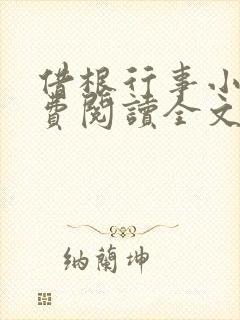 借根行事小
費閱讀全文
納蘭坤